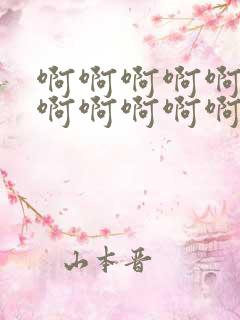 啊啊啊啊啊
啊啊啊啊啊
山本晋